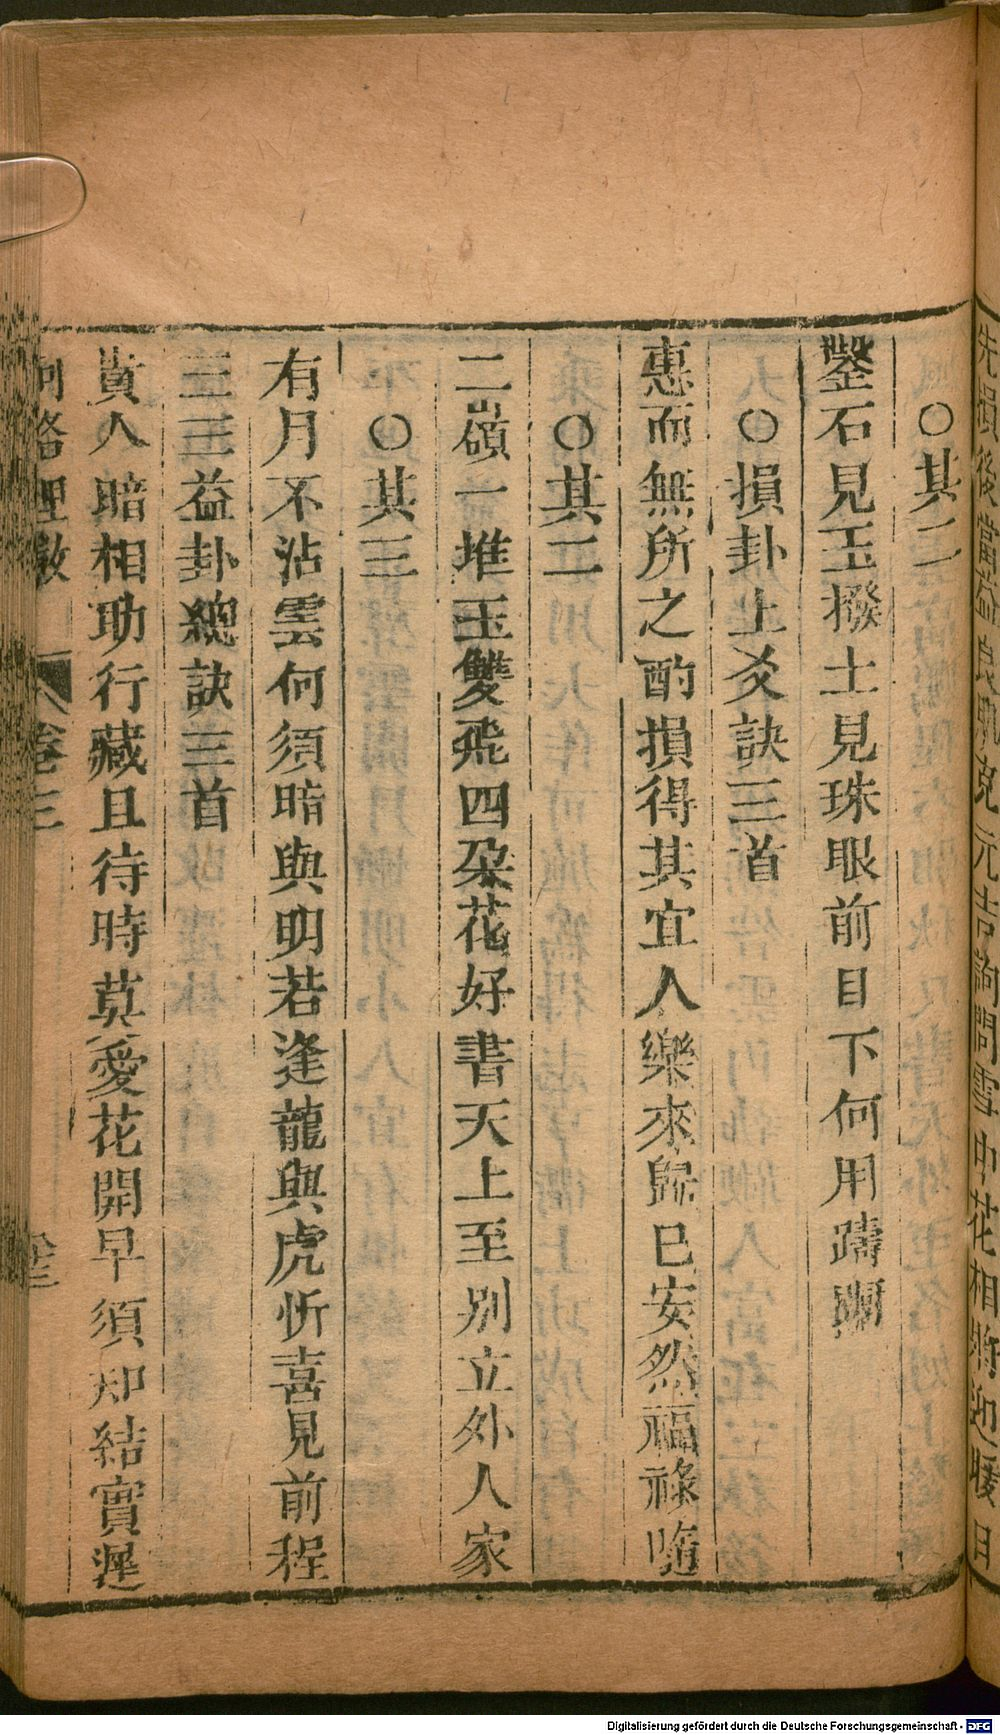 先損後當益良
元吉詢問雪中花相
暖日
○其二
鑿石見玉撥土見珠眼前目下何用躊躕
○損卦上爻訣三首
惠而無所之酌損得其宜人樂來歸巳安然福祿隨
○其二
二嶺一堆玉雙飛四朶花好書天上至別立外人家
○其三
有月不沾雲何須暗與明若逢龍與虎忻喜見前程
益卦總訣三首
貴人暗相助行藏且待時莫愛花開早須知結實遲
河洛理數
卷三
Digitalisierung gefördert durch die Deutsche Forschungsgemeinschaft - DFG